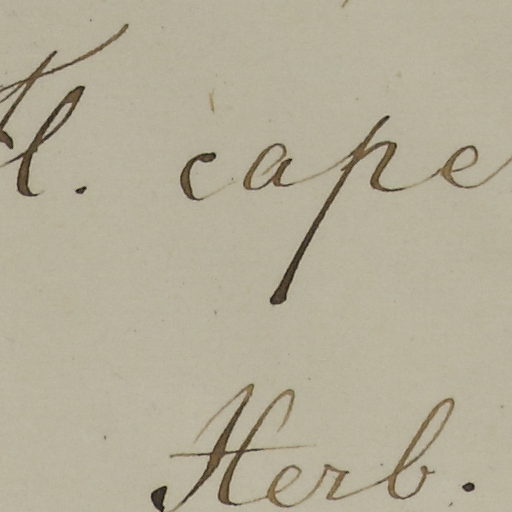 Fl. cape
Herb.